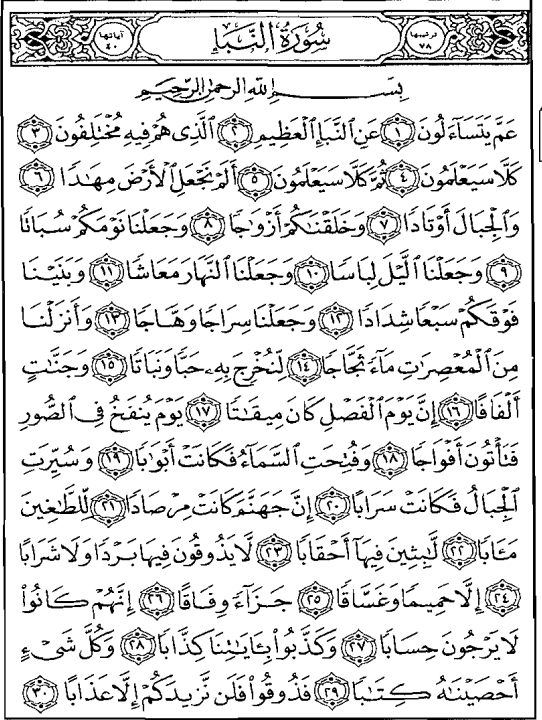 ترتيبها ٧٨
سُورَةُ النَّبَإِ
آياتها ٤٠
بِسْمِ اللَّهِ الرَّحْمَٰنِ الرَّحِيمِ
عَمَّ يَتَسَآءَلُونَ ١ عَنِ ٱلنَّبَإِ ٱلْعَظِيمِ ٢ ٱلَّذِى هُمْ فِيهِ مُخْتَلِفُونَ ٣
كَلَّا سَيَعْلَمُونَ ٤ ثُمَّ كَلَّا سَيَعْلَمُونَ ٥ أَلَمْ نَجْعَلِ ٱلْأَرْضَ مِهَٰدًا ٦
وَٱلْجِبَالَ أَوْتَادًا ٧ وَخَلَقْنَٰكُمْ أَزْوَٰجًا ٨ وَجَعَلْنَا نَوْمَكُمْ سُبَاتًا
٩ وَجَعَلْنَا ٱلَّيْلَ لِبَاسًا ١٠ وَجَعَلْنَا ٱلنَّهَارَ مَعَاشًا ١١ وَبَنَيْنَا
فَوْقَكُمْ سَبْعًا شِدَادًا ١٢ وَجَعَلْنَا سِرَاجًا وَهَّاجًا ١٣ وَأَنزَلْنَا
مِنَ ٱلْمُعْصِرَٰتِ مَآءً ثَجَّاجًا ١٤ لِّنُخْرِجَ بِهِۦ حَبًّا وَنَبَاتًا ١٥ وَجَنَّٰتٍ
أَلْفَافًا ١٦ إِنَّ يَوْمَ ٱلْفَصْلِ كَانَ مِيقَٰتًا ١٧ يَوْمَ يُنفَخُ فِى ٱلصُّورِ
فَتَأْتُونَ أَفْوَاجًا ١٨ وَفُتِحَتِ ٱلسَّمَآءُ فَكَانَتْ أَبْوَٰبًا ١٩ وَسُيِّرَتِ
ٱلْجِبَالُ فَكَانَتْ سَرَابًا ٢٠ إِنَّ جَهَنَّمَ كَانَتْ مِرْصَادًا ٢١ لِّلطَّٰغِينَ
مَـَٔابًا ٢٢ لَّٰبِثِينَ فِيهَآ أَحْقَابًا ٢٣ لَّا يَذُوقُونَ فِيهَا بَرْدًا وَلَا شَرَابًا
٢٤ إِلَّا حَمِيمًا وَغَسَّاقًا ٢٥ جَزَآءً وِفَاقًا ٢٦ إِنَّهُمْ كَانُوا۟
لَا يَرْجُونَ حِسَابًا ٢٧ وَكَذَّبُوا۟ بِـَٔايَٰتِنَا كِذَّابًا ٢٨ وَكُلَّ شَىْءٍ
أَحْصَيْنَٰهُ كِتَٰبًا ٢٩ فَذُوقُوا۟ فَلَن نَّزِيدَكُمْ إِلَّا عَذَابًا ٣٠